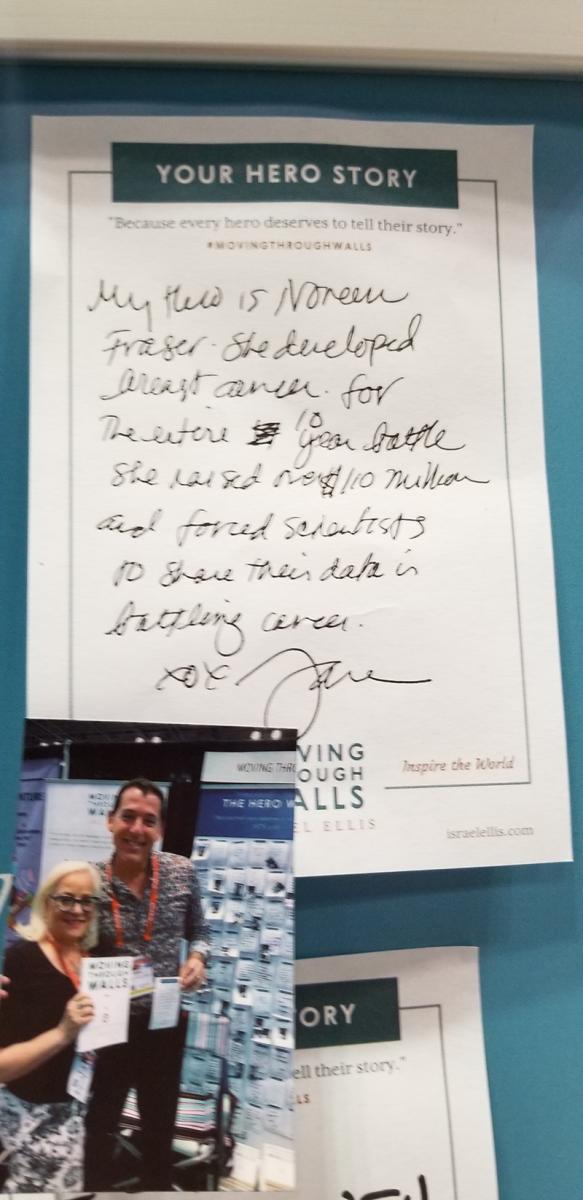 YOUR HERO STORY
"Because every hero deserves to tell their story."
#MOVINGTHROUGHWALLS
My Hero is Noreen
Fraser. She developed
breast cancer. for
The entire 10 year battle
She raised over $110 million
and forced scientists
to share their data in
battling cancer.
xox Jane
VING
OUGH
ALLS
EL ELLIS
Inspire the World
israelellis.com
MOVING THR
THE HERO W
MOVING
THROUGH
WALLS
MOVING
THROUGH
WALLS
ORY
ell their story."
LS